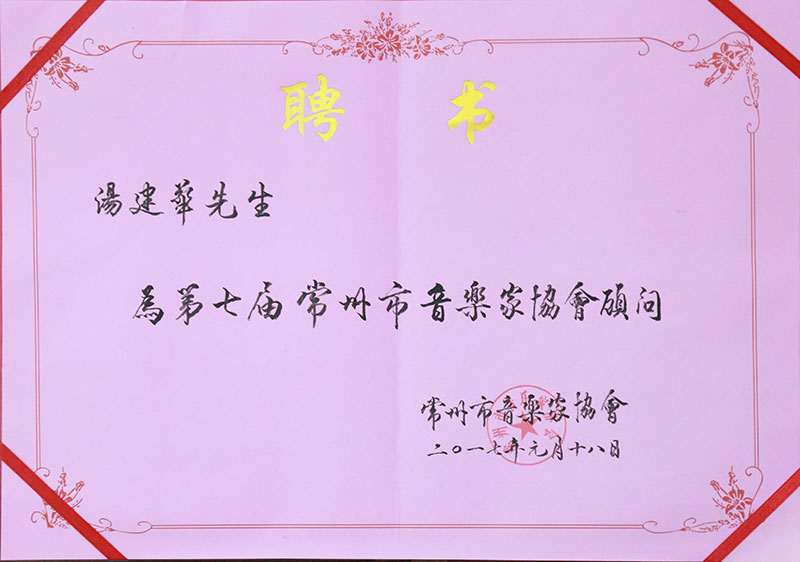 聘书
湯建華先生
為第七届常州市音樂家協會顾问
常州市音樂家協會
二〇一七年元月十八日